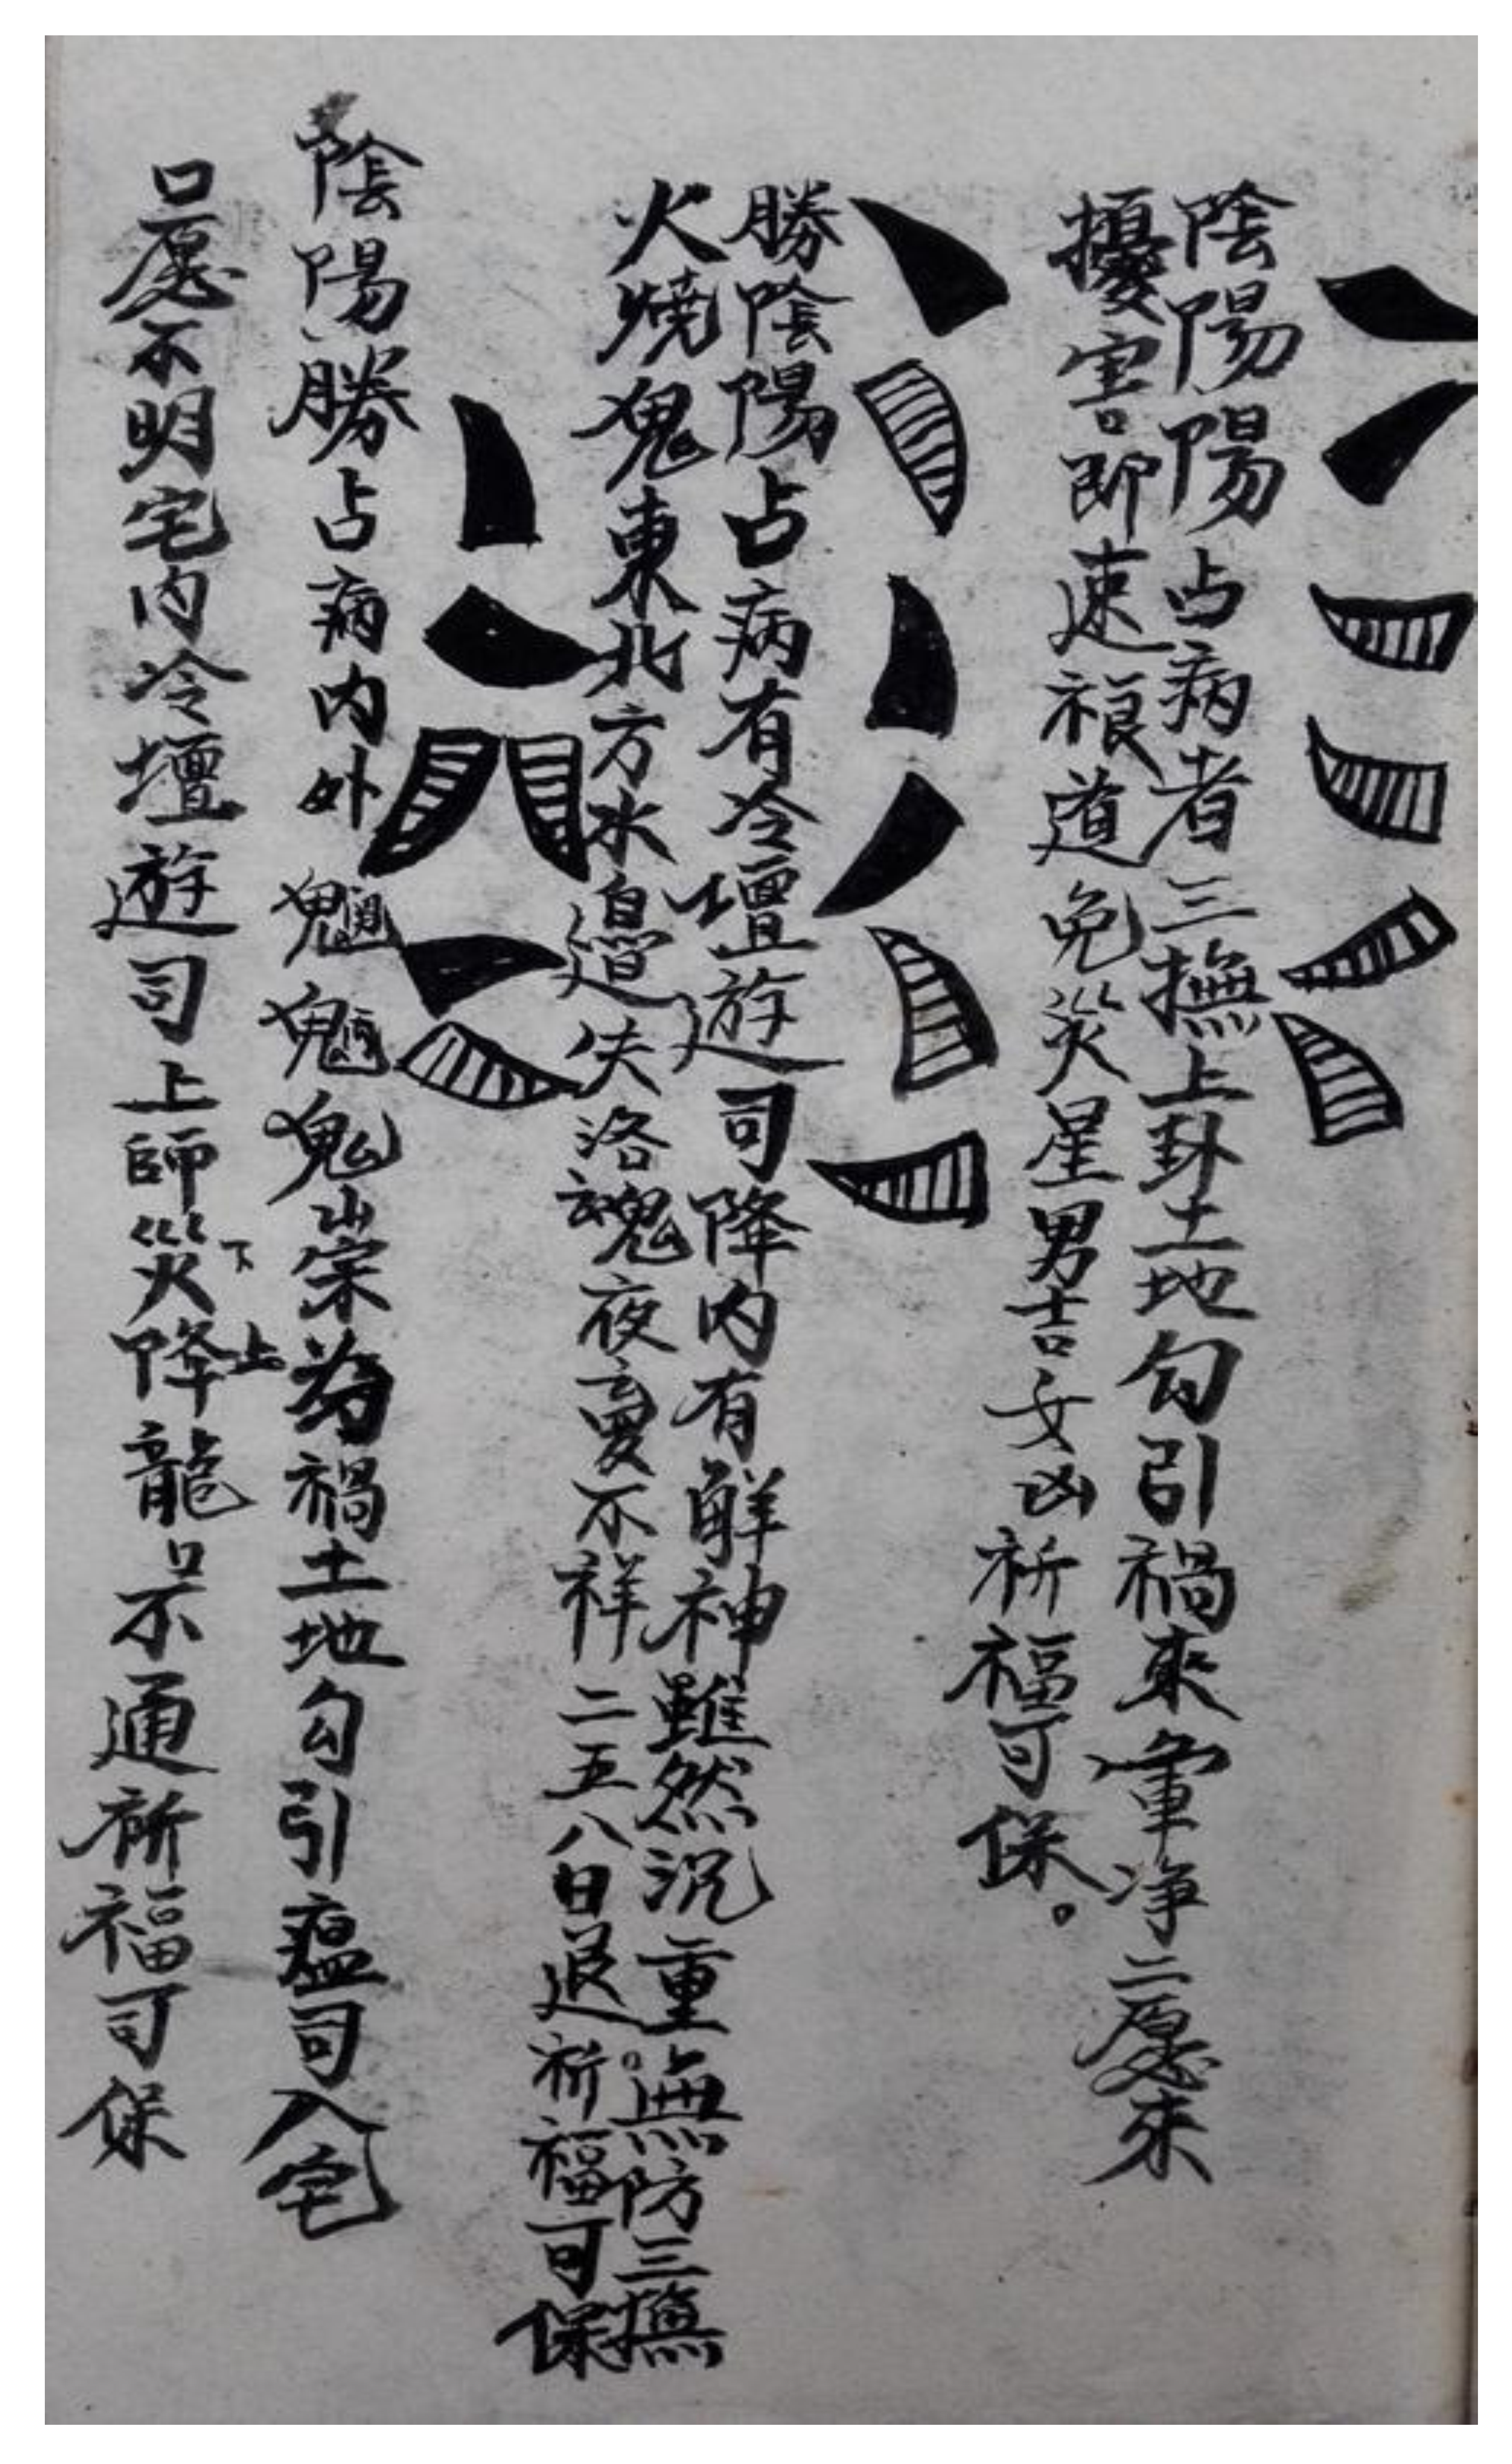 陰陽陽占病者三撫上卦土地勾引禍來軍净二愿來
擾害即速禳道免災星男吉女凶祈福可保。
勝陰陽占病有冷壇遊司降內有解神雖然沉重無防三撫
火燒鬼東北方水邊失洛魂夜夢不祥二五八日退祈福可保
陰陽勝占病內外魍魎鬼祟為禍土地勾引瘟司入宅
口愿不明宅內冷壇遊司上師災下降上龍口不通祈福可保